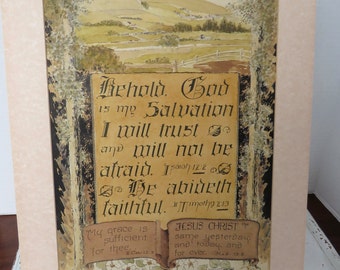 Behold, God
is my Salvation
I will trust
and will not be
afraid. Isaiah 12:2
He abideth
faithful. II Timothy 2:13
My grace is
sufficient
for thee.
JESUS CHRIST the
same yesterday,
and today, and
for ever.